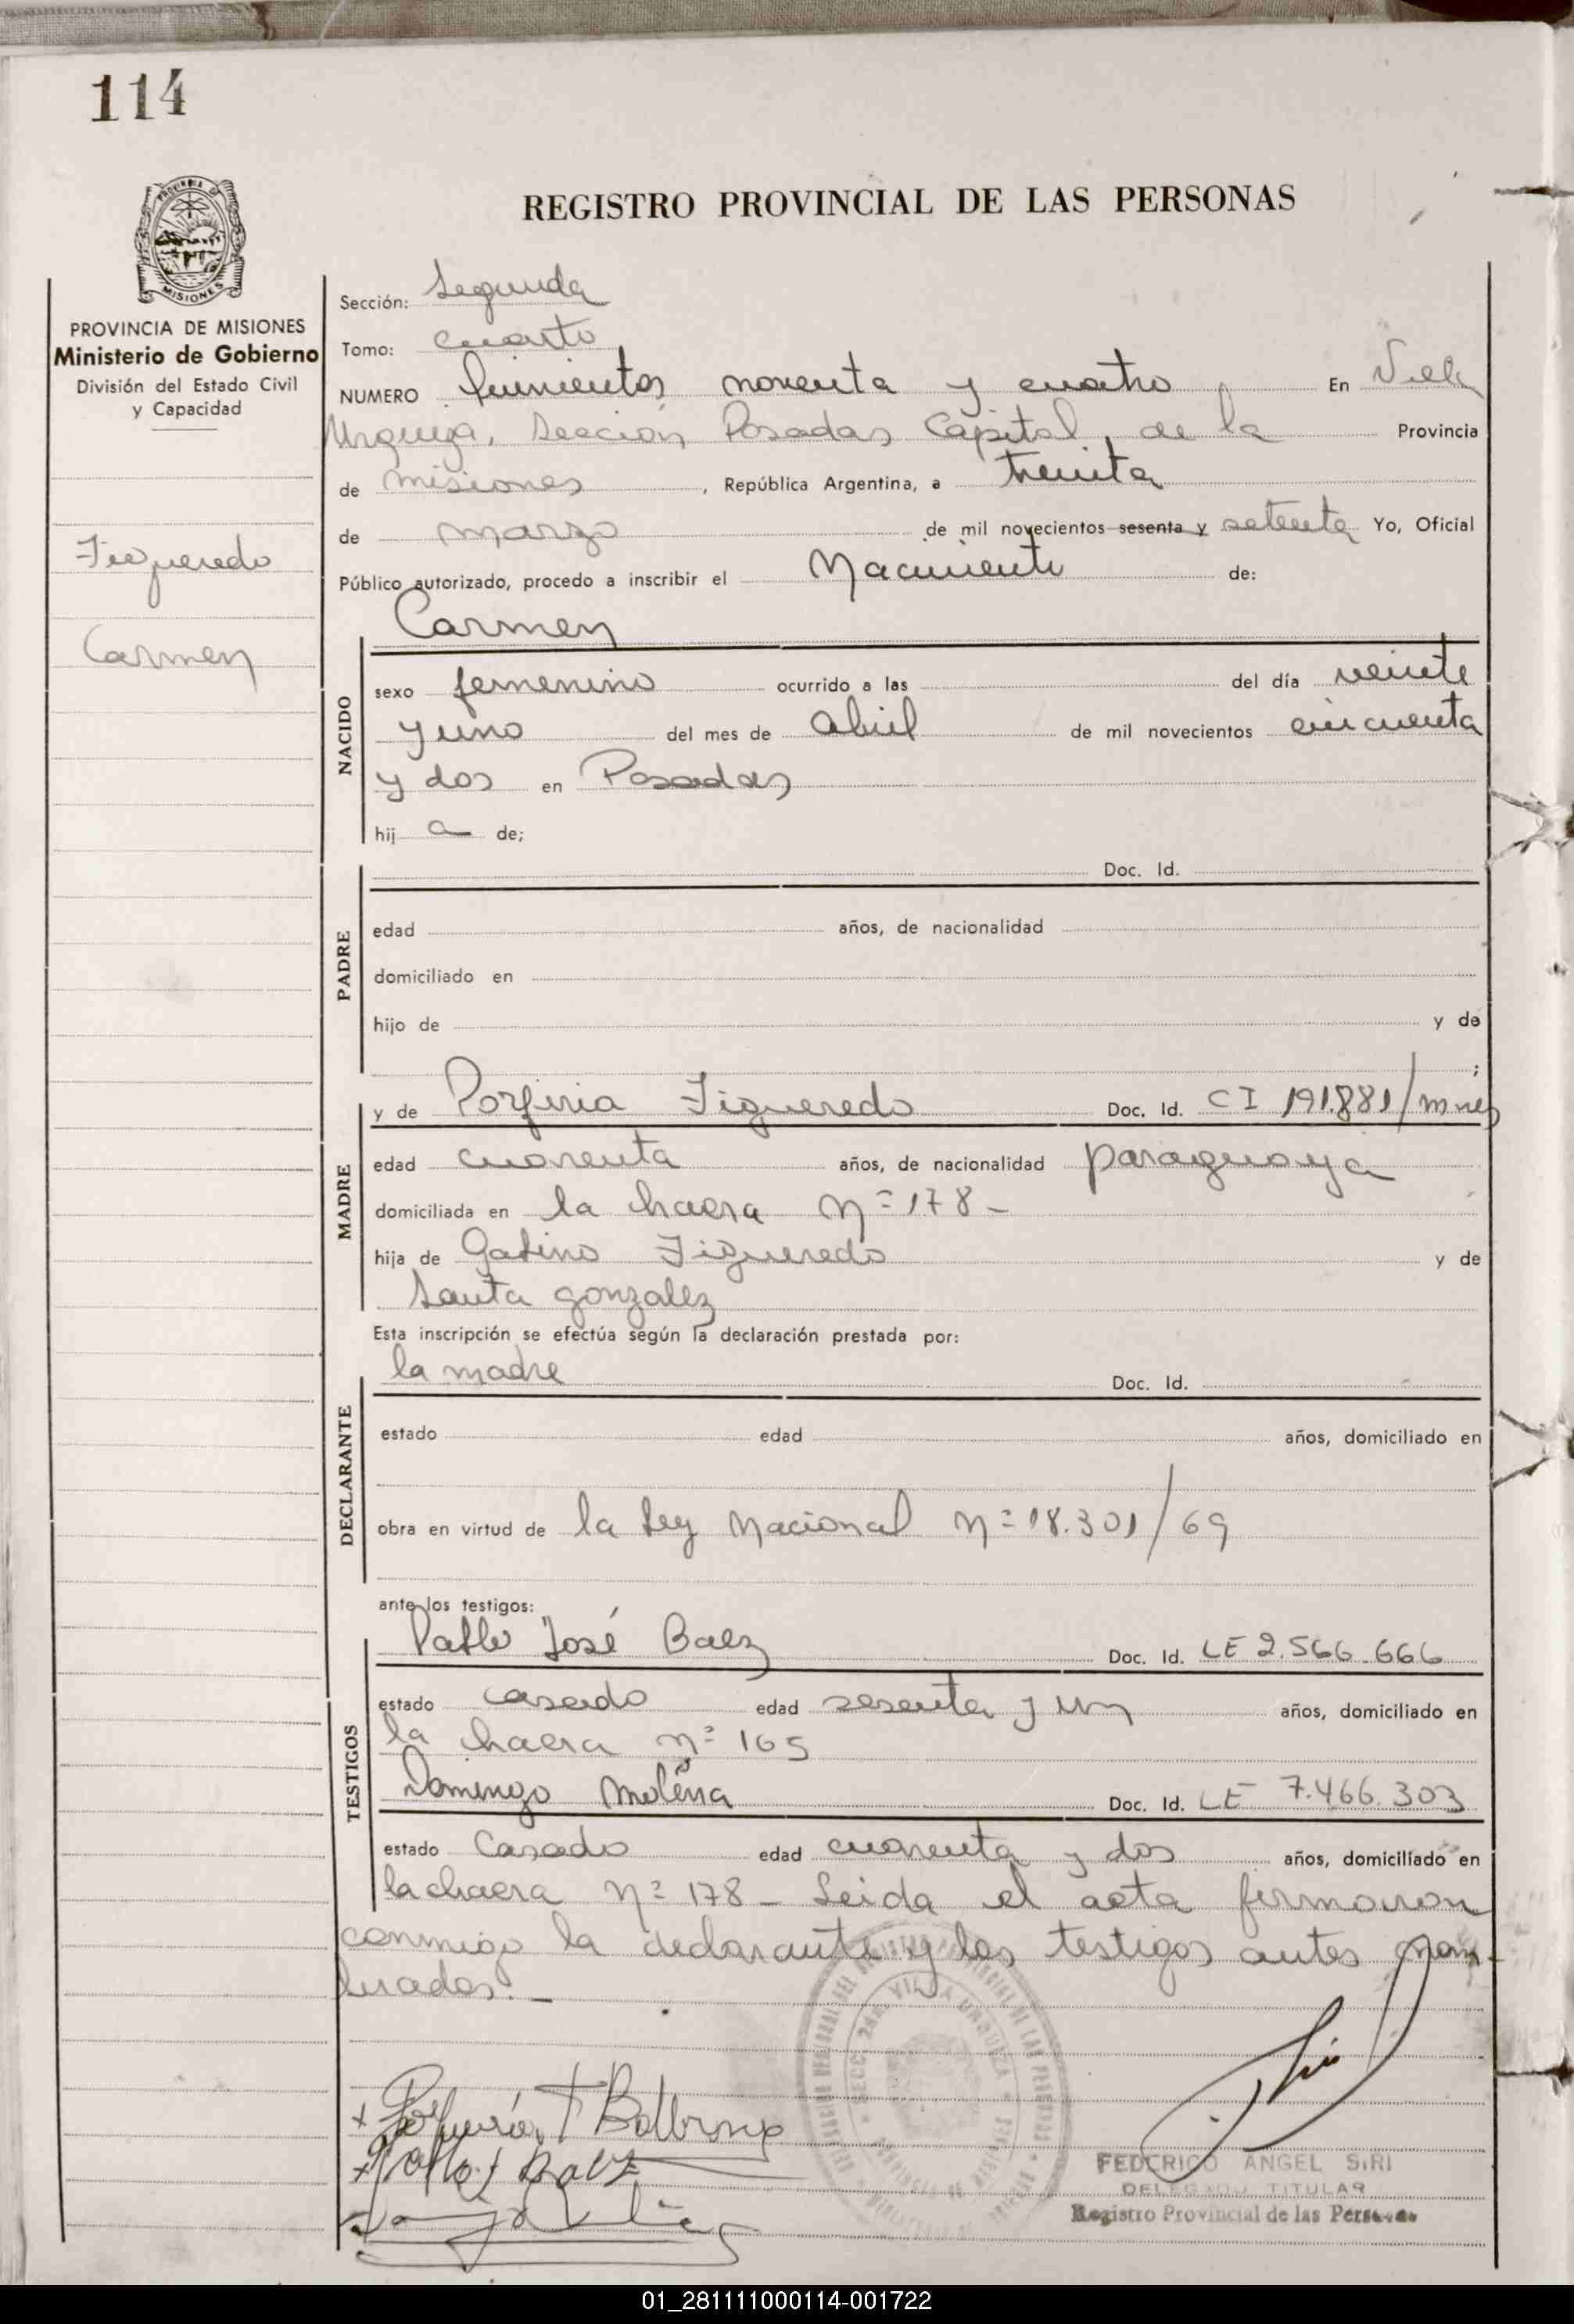 114
REGISTRO PROVINCIAL DE LAS PERSONAS
PROVINCIA DE MISIONES
Ministerio de Gobierno
División del Estado Civil
y Capacidad
Figueredo
Carmen
Sección: Segunda
Tomo: cuarto
NUMERO quinientos noventa y cuatro, En Villa
Urquiza, Sección Posadas Capital, de la Provincia
de misiones, República Argentina, a treinta
de marzo de mil novecientos sesenta y setenta Yo, Oficial
Público autorizado, procedo a inscribir el Nacimiento de:
Carmen
NACIDO
sexo femenino ocurrido a las del día veinte
y uno del mes de abril de mil novecientos cincuenta
y dos en Posadas
hij a de;
Doc. Id.
PADRE
edad años, de nacionalidad
domiciliado en
hijo de y de
;
MADRE
y de Porfiria Figueredo Doc. Id. CI 191.881/mnes
edad cuarenta años, de nacionalidad paraguaya
domiciliada en la chacra Nº 178-
hija de Figueredo y de
Santa gonzalez
Esta inscripción se efectúa según la declaración prestada por:
la madre Doc. Id.
DECLARANTE
estado edad años, domiciliado en
obra en virtud de la Ley Nacional Nº 18.301/69
ante los testigos:
TESTIGOS
Pablo José Baez Doc. Id. LE 2.566.666
estado casado edad sesenta y un años, domiciliado en
la chacra nº 165
Domingo Molina Doc. Id. LE 7.466.303
estado Casado edad cuarenta y dos años, domiciliado en
la chacra Nº 178 - Leida el acta firmaron
conmigo la declarante y los testigos antes nom-
brados.-
FEDERICO ANGEL SIRI
DELEGADO TITULAR
Registro Provincial de las Personas
01_281111000114-001722